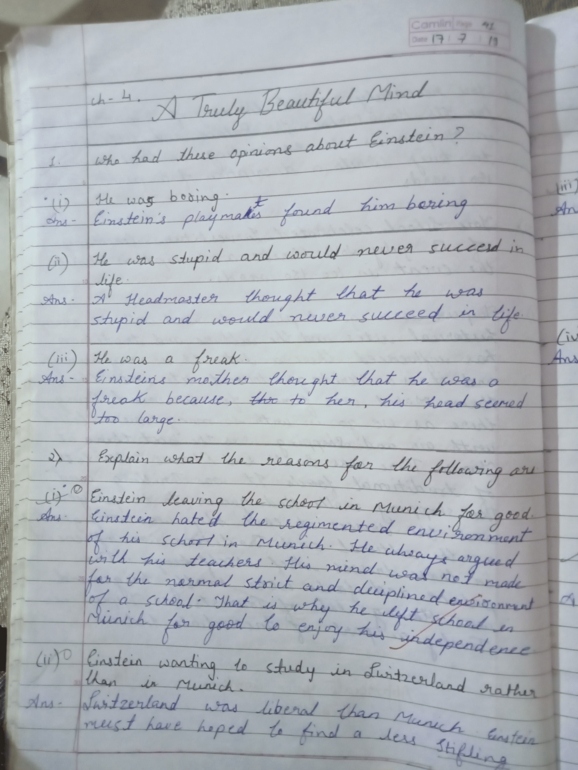 Camlin Page 41
Date 17 : 7 : 19
ch - 4.
A Truly Beautiful Mind
1. Who had these opinions about Einstein?
(i) He was boring.
Ans - Einstein's playmates found him boring
(ii) He was stupid and would never succeed in
life.
Ans. A Headmaster thought that he was
stupid and would never succeed in life
(iii) He was a freak.
Ans - Einsteins mother thought that he was a
freak because, to her, his head seemed
too large.
2) Explain what the reasons for the following are
(i) Einstein leaving the school in Munich for good.
Ans. Einstein hated the regimented environment
of his school in Munich. He always argued
with his teachers. His mind was not made
for the normal strict and diciplined environment
of a school. That is why he left school in
Munich for good to enjoy his independence
(ii) Einstein wanting to study in Switzerland rather
than in Munich.
Ans - Switzerland was liberal than Munich. Einstein
must have hoped to find a less stifling
(iii)
An
(iv
Ans